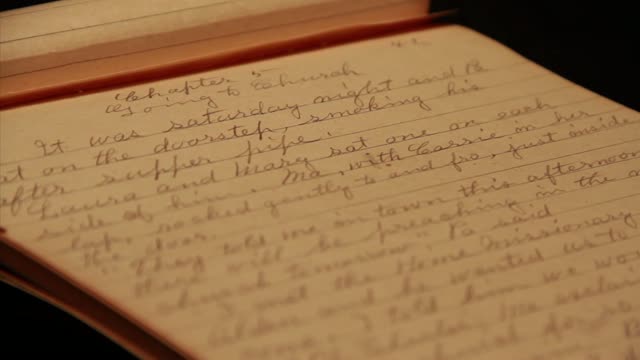 Chapter 5
Going to Church
It was saturday night and Pa
at on the doorstep, smoking his
after supper pipe.
Laura and Mary sat one on each
side of him. Ma, with Carrie in her
lap, rocked gently to and fro, just inside
the door.
"They told me in town this afternoon
there will be preaching in the
church tomorrow" Pa said.
I met the Home Missionary
Alden and he wanted us to
I told him we wo